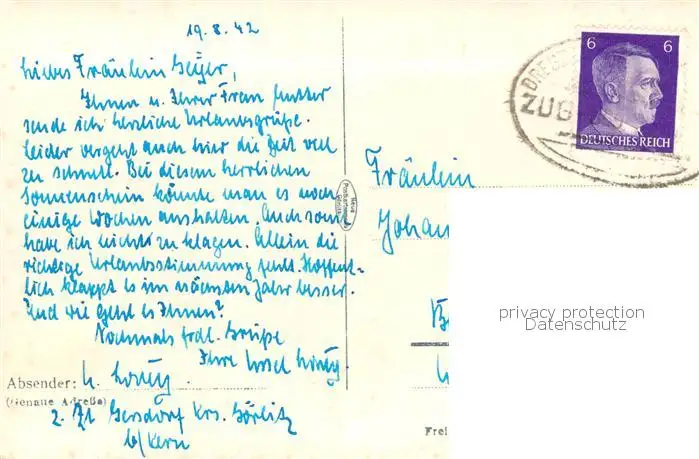 19.8.42
Liebes Fräulein Geyer,
Ihnen u. Ihrer Frau Mutter
sende ich herzliche Urlaubsgrüße.
Leider vergeht auch hier die Zeit viel
zu schnell. Bei diesem herrlichen
Sonnenschein könnte man es noch
einige Wochen aushalten. Auch sonst
habe ich nichts zu klagen. Allein die
richtige Urlaubsstimmung fehlt. Hoffent-
lich klappt es im nächsten Jahr besser.
Und wie geht es Ihnen?
Nochmals frdl. Grüße
Ihre
Absender: U.
(Genaue Adreße)
2. Zt Gersdorf Krs. Görlitz
b/ Kern
Neue
Görlitz
6 6
DEUTSCHES REICH
ZUG
Fräulein
Johan
privacy protection
Datenschutz
Frei